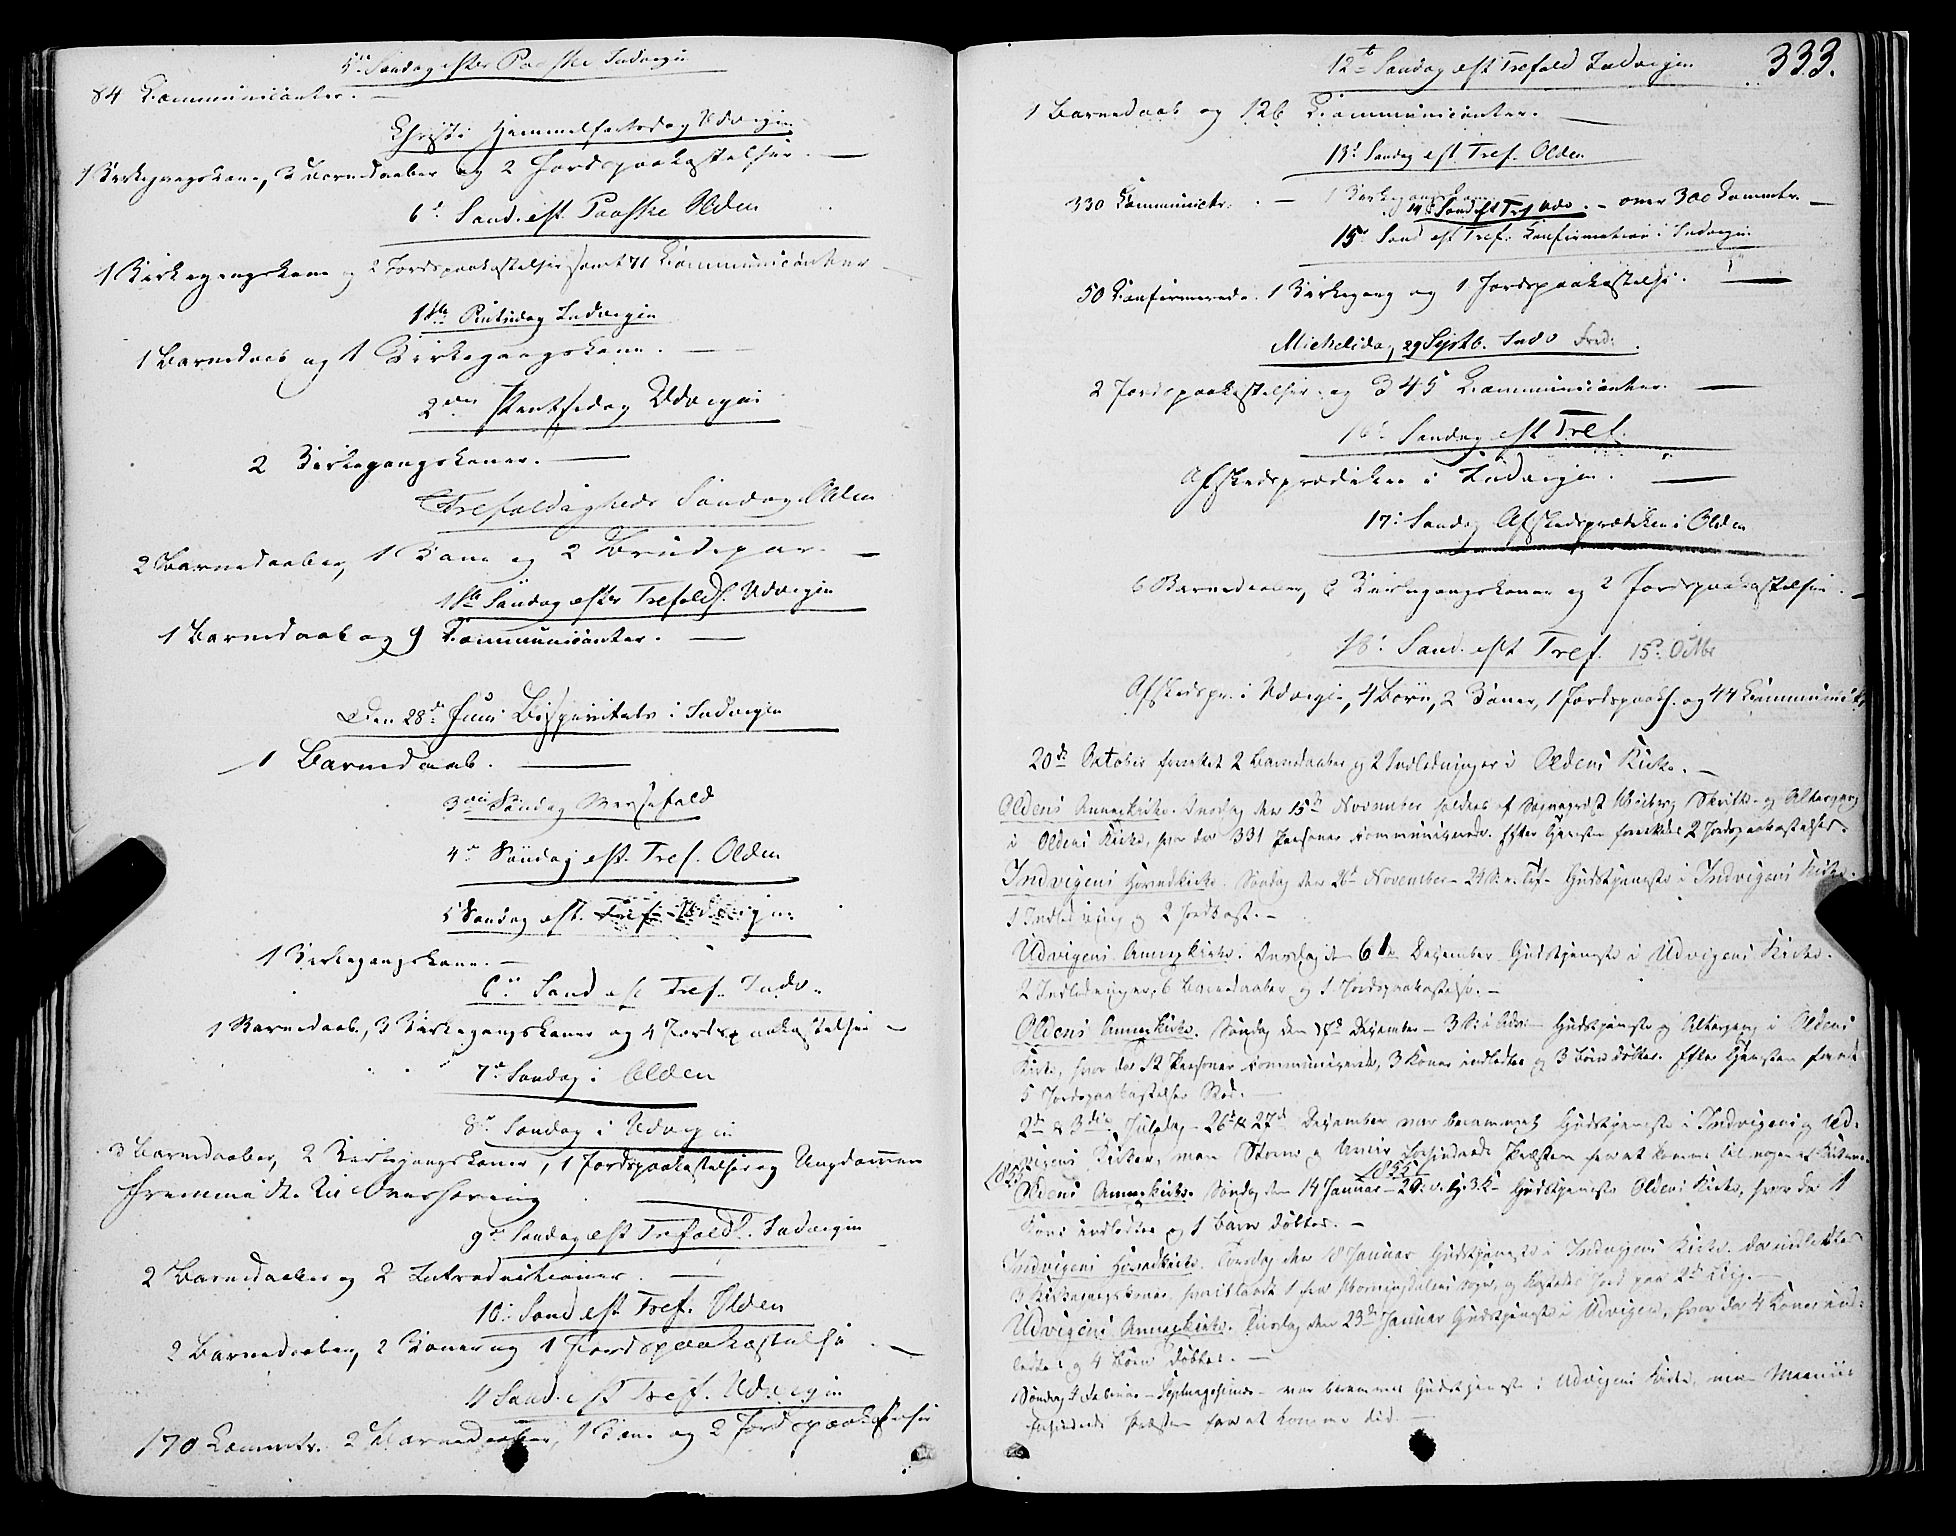 5te Søndag efter Paaske Indvigen
84 Communicanter. —
Christi Himmelfartsdag Udvigen
1 Kirkegangskone, 2 Barnedaaber og 2 Jordspaakastelser. —
6te Sønd. eft. Paaske Olden
1 Kirkegangskone og 2 Jordspaakastelser samt 71 Communicanter
1ste Pintsedag Indvigen
1 Barnedaab og 1 Kirkegangskone. —
2den Pintsedag Udvigen
2 Kirkegangskoner. —
Trefoldigheds Søndag Olden
2 Barnedaaber, 1 Kone og 2 Brudepar. —
1ste Søndag efter Trefolds. Udvigen
1 Barnedaab og 9 Communicanter. —
Den 28de Juni Bispevisitats i Indvigen
1 Barnedaab. —
3die Søndag Messefald
4de Søndag eft. Tref. Olden
5 Søndag eft. Tref. Udvigen
1 Kirkegangskone. —
6te Sønd eft Tref. Indv.
1 Barnedaab, 3 Kirkegangskoner og 4 Jordspaakastelser —
7de Søndag i Olden
8de Søndag i Udvigen
3 Barnedaaber, 2 Kirkegangskoner, 1 Jordspaakastelse og Ungdommen
fremmødte til Overhøring
9de Søndag eft Trefold. Indvigen
2 Barnedaaber og 2 Introductioner. —
10: Sønd eft Tref. Olden
2 Barnedaaber, 2 Koner og 1 Jordspaakastelse. —
11 Sønd. eft Tref. Udvigen
170 Commctr. 2 Barnedaaber, 1 Kone og 2 Jordspaakastelser
333.
12te Søndag eft Trefold Indvigen
1 Barnedaab og 126 Communicanter. —
13de Søndag eft. Tref. Olden
330 Communictr. — 1 Kirkegangskone
14de Sønd eft Tref Udv. — over 300 Commctr. —
15de Sønd eft Tref. Confirmation i Indvigen
50 Confirmerede. 1 Kirkegang og 1 Jordspaakastelse. —
Michelsdag 29 Septb. Indv
2 Jordspaakastelser og 345 Communicanter. —
16de Søndag eft Tref.
Afskedsprædiken i Indvigen. —
17: Søndag Afskedsprædiken i Olden
6 Barnedaaber, 6 Kirkegangskoner og 2 Jordspaakastelser. —
18: Sønd. eft Tref. 15de Octbr
Afskedspr. i Udvigen, 4 Børn, 2 Koner, 1 Jordspaak. og 44 Communik.
20de Oktober forrettet 2 Barnedaaber og 2 Indledninger i Oldens Kirke. —
Oldens Annexkirke. Onsdag den 15de November holdtes af Sognepræst Skrifte- og Altergang
i Oldens Kirke, hvor der 331 Personer communicerede. Efter Tjenesten forrettedes 2 Jordspaakastelser.
Indvigens Hovedkirke. Søndag den 26de November — 24 S. e. Tref — Gudstjeneste i Indvigens Kirke.
1 Indledning og 2 Jordkast. —
Udvigens Annexkirke. Onsdag den 6te December Gudstjeneste i Udvigens Kirke.
2 Indledninger, 6 Barnedaaber og 1 Jordspaakastelse. —
Oldens Annexkirke. Søndag den December — 3 S. i Adv. — Gudstjeneste og Altergang i Oldens
Kirke, hvor der 12 Personer communicerede, 3 Koner indledtes og 3 Børn døbtes. Efter Tjenesten
5 Jordspaakastelser
2den & 3die Juledag — 26de & 27de December var berammet Gudstjeneste i Indvigens og Ud-
vigens Kirker, men Storm og Uveir forhindrede Præsten fra at komme til nogen af Kirkerne.
1855
1855
Oldens Annexkirke. Søndag den 14 Januar — Gudstjeneste Oldens Kirke, hvor der 1
Kone indledtes og 1 Barn døbtes. —
Indvigens Hovedkirke. Torsdag den 18 Januar Gudstjeneste i Indvigens Kirke. Da indledtes
3 Kirkegangskoner, hvoriblandt 1 fra Horningdalens Sogn, og kastedes Jord paa 2de Lig. —
Udvigens Annexkirke. Tirsdag den 23de Januar Gudstjeneste i Udvigen, hvor der 4 Koner ind-
ledtes og 4 Børn døbtes. —
Søndag 4 Februar — Septuagesima — var berammet Gudstjeneste i Udvigens Kirke, men
forhindrede Præsten fra at komme did. —